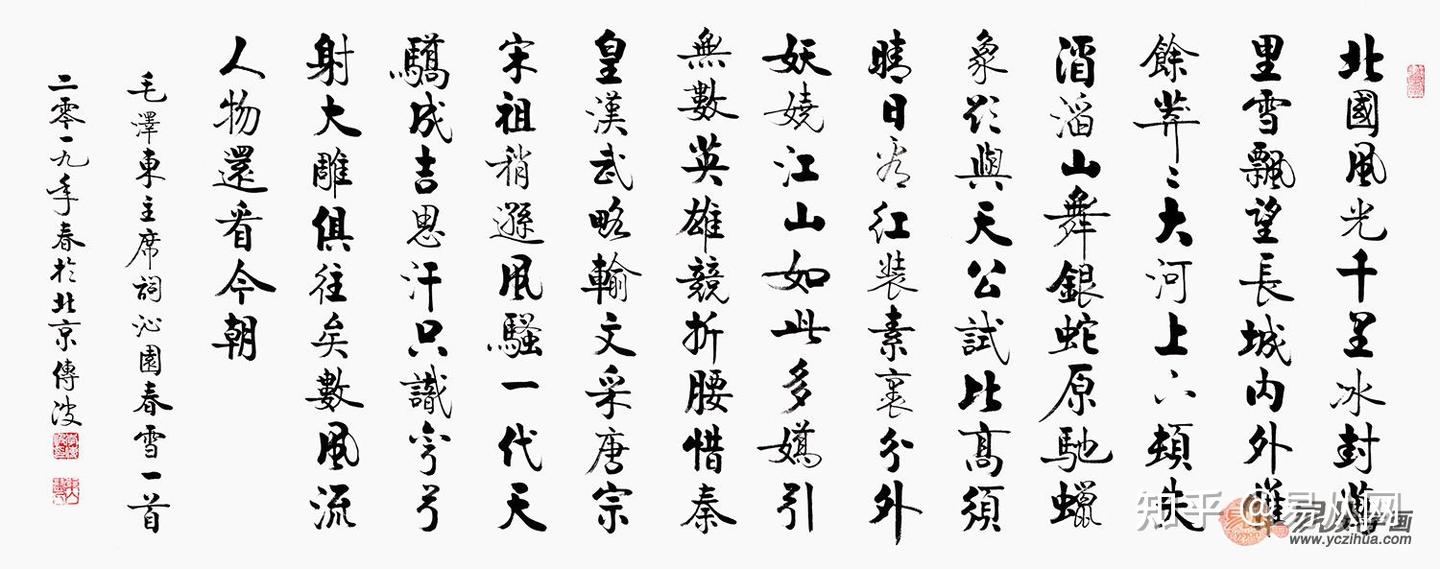 北國風光千里冰封萬
里雪飄望長城内外惟
餘莽〻大河上下頓失
滔滔山舞銀蛇原馳蠟
象欲與天公試比高須
晴日看紅裝素裹分外
妖嬈江山如此多嬌引
無數英雄競折腰惜秦
皇漢武略輸文采唐宗
宋祖稍遜風騷一代天
驕成吉思汗只識彎弓
射大雕俱往矣數風流
人物還看今朝
毛澤東主席詞沁園春雪一首
二零一九年春於北京傳波
知乎 @易从网
易从字画
www.yczihua.com